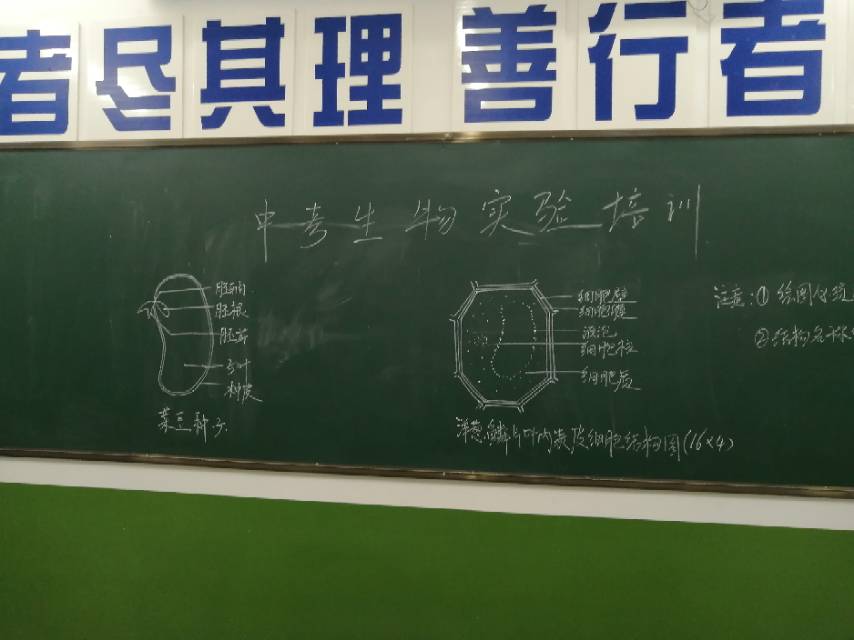 者尽其理 善行者
中考生物实验培训
胚轴
胚根
胚芽
子叶
种皮
菜豆种子
细胞壁
细胞膜
液泡
细胞核
细胞质
洋葱鳞片叶内表皮细胞结构图(16×4)
注意:①绘图必须
②结构名称